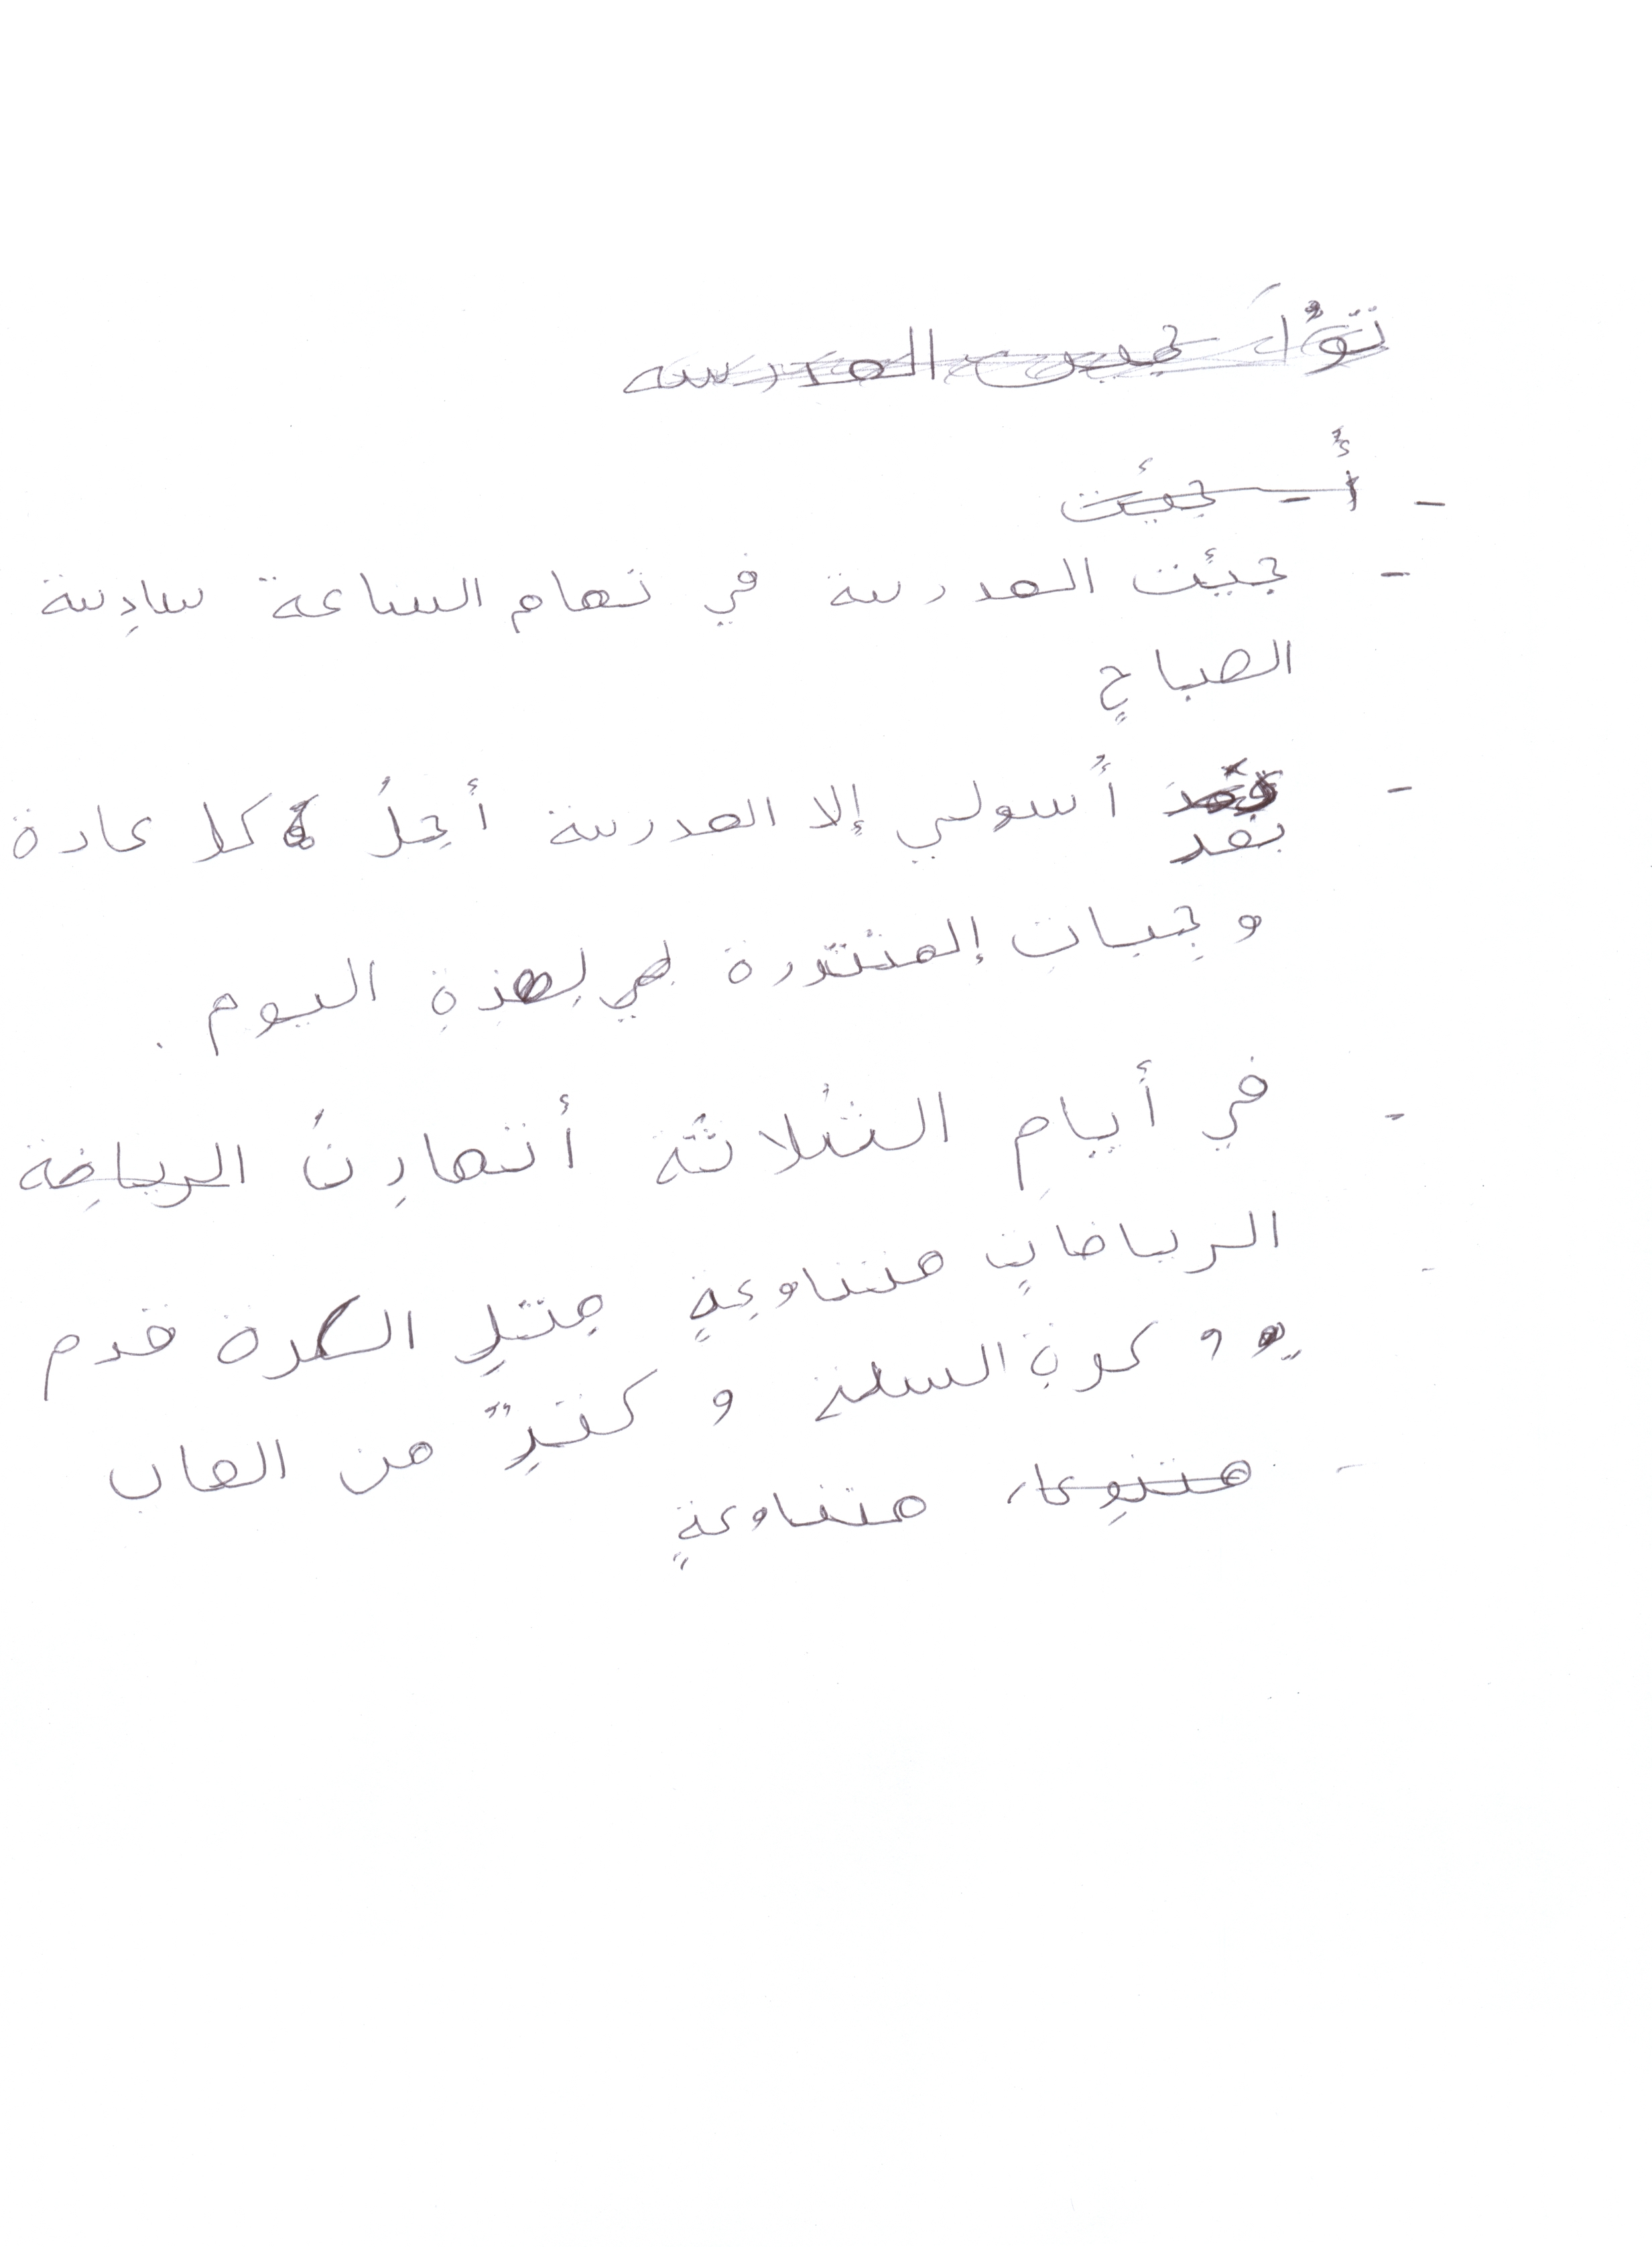 - جيئت المدرسة في تمام الساعة سادِسة
الصباحٍ
- بعد أُسولي إلا المدرسة أحِلُ كلا عادة
وجِبات إلمنتورة لهذةِ اليوم .
- في أيامِ الثلاثة أتمارِنُ الرياضِة
الرياضاتٍ متناوعةٍ مِتلِ الكرة قدم
و كورةِ السلة و كتيرٌ من العاب
متنوعا، متناوعةٍ